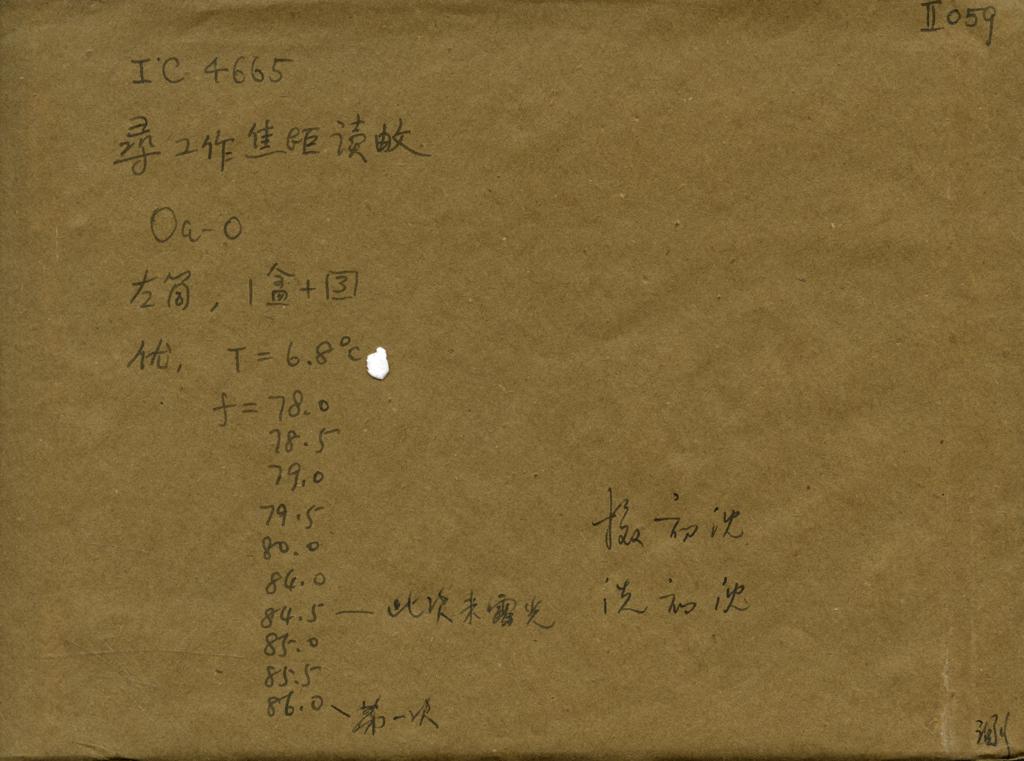 II 059
IC 4665
尋工作焦距读数
Oa-O
左筒,1盒+3
优, T=6.8°C
f=78.0
78.5
79.0
79.5
80.0
84.0
84.5 — 此次未露光
85.0
85.5
86.0 第一次
摄 初 沈
洗 初 沈
测